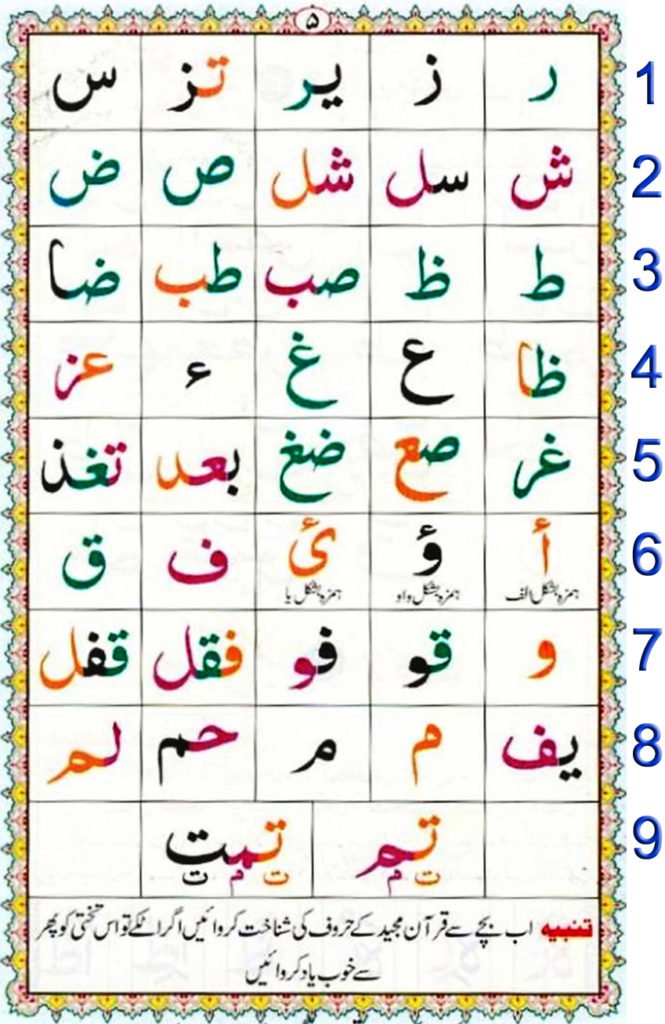 ۵
ر ز یر تز س 1
ش سل شل ص ض 2
ط ظ صب طب ضا 3
ظا ع غ ء عز 4
غر صع ضغ بعد تغذ 5
أ ؤ ئ ف ق 6
ہمزہ بشکل الف ہمزہ بشکل واو ہمزہ بشکل یا
و قو فو فقل قفل 7
یف م م حم لم 8
تم تمت 9
ت م ت م ت
تنبیہ اب بچے سے قرآن مجید کے حروف کی شناخت کروائیں اگر اٹکے تو اس تختی کو پھر
سے خوب یاد کروائیں